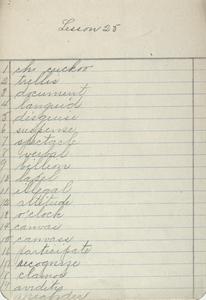 Lesson 25
1 ch cuckoo
2 trellis
3 document
4 languid
5 disguise
6 suspense
7 spectacle
8 verbal
9 billion
10 lapel
11 illegal
12 altitude
13 o'clock
14 canvas
15 canvass
16 participate
17 recognize
18 clamor
19 avidity